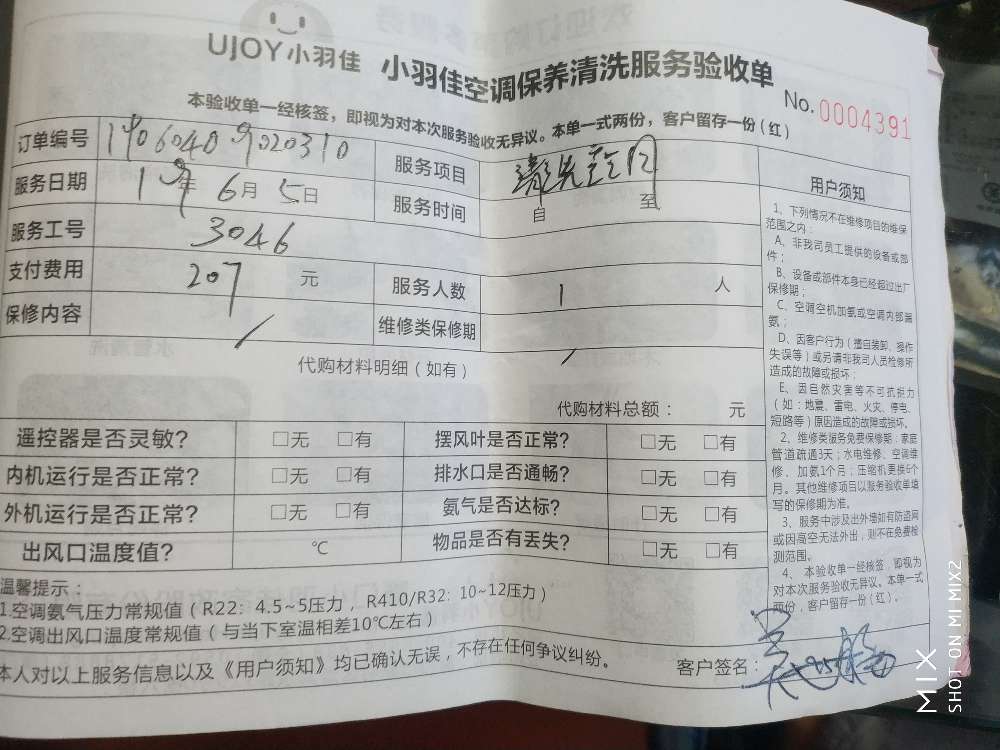 UJOY小羽佳 小羽佳空调保养清洗服务验收单
No. 0004391
本验收单一经核签，即视为对本次服务验收无异议。本单一式两份，客户留存一份（红）
订单编号 19060409020310 服务项目
服务日期 19年 6月 5日 服务时间 自 至
服务工号 3046
支付费用 207 元 服务人数 1 人
保修内容 / 维修类保修期 /
代购材料明细（如有）
代购材料总额： 元
遥控器是否灵敏? □无 □有 摆风叶是否正常? □无 □有
内机运行是否正常? □无 □有 排水口是否通畅? □无 □有
外机运行是否正常? □无 □有 氨气是否达标? □无 □有
出风口温度值? ℃ 物品是否有丢失? □无 □有
温馨提示：
1.空调氨气压力常规值（R22：4.5~5压力，R410/R32：10~12压力）
2.空调出风口温度常规值（与当下室温相差10℃左右）
本人对以上服务信息以及《用户须知》均已确认无误，不存在任何争议纠纷。
客户签名：
用户须知
1、下列情况不在维修项目的维保
范围之内：
A、非我司员工提供的设备或部
件；
B、设备或部件本身已经超过出厂
保修期；
C、空调空机加氨或空调内部漏
氨；
D、因客户行为（擅自装卸、操作
失误等）或另请非我司人员检修所
造成的故障或损坏；
E、因自然灾害等不可抗拒力
（如：地震、雷电、火灾、停电、
短路等）原因造成的故障或损坏。
2、维修类服务免费保修期，家庭
管道疏通3天；水电维修、空调维
修、加氨1个月；压缩机更换6个
月。其他维修项目以服务验收单填
写的保修期为准。
3、服务中涉及出外墙如有防盗网
或因高空无法外出，则不在免费检
测范围。
4、本验收单一经核签，即视为
对本次服务验收无异议。本单一式
两份，客户留存一份（红）。
MIX
SHOT ON MI MIX2